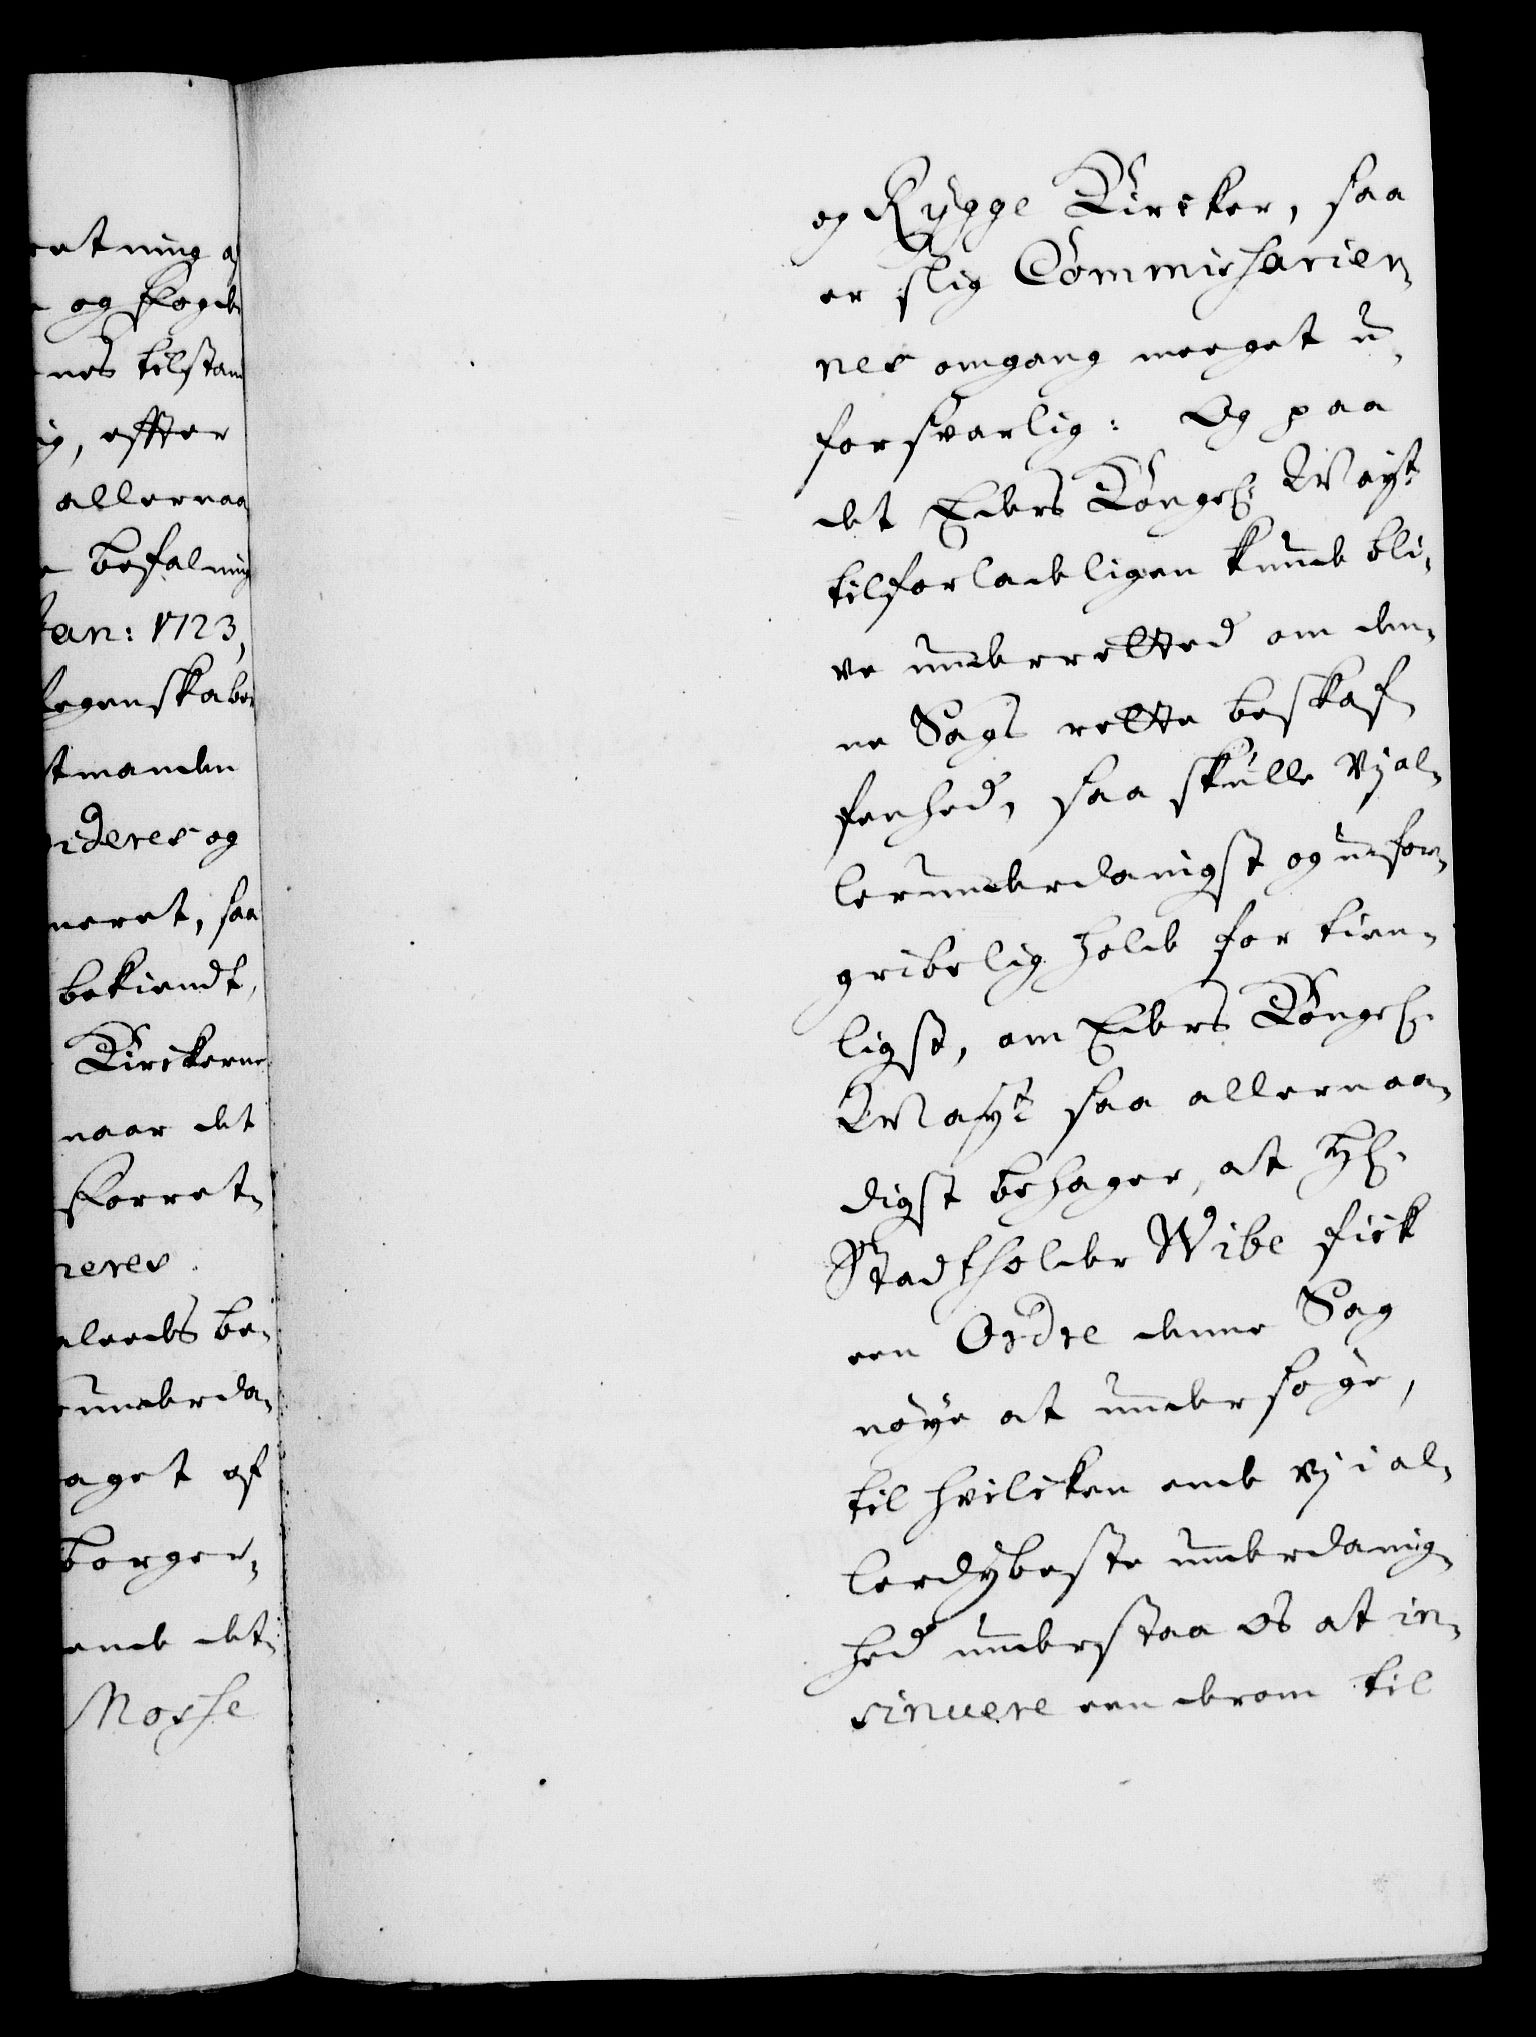 etning af
og Fogde
nes tilstand
ig, effter
allernaa
befalning
Jan: 1723,
legenskaben
tmanden
ideres og
neret, saa
bekiendt,
Kirckerne
naar det
Forret-
neres.
aleeds be-
underda-
aget af
borger-
ende det
Mosse
og Rygge Kircker, saa
er slig Commissarier-
nes omgang meeget u-
forsvarlig: Og paa
det Eders Kongel: Mayt
tilforladeligen kunde bli-
ve underretted om den-
ne Sags rette beskaf-
fenhed, saa skulle vj al-
lerunderdanigst og unfor-
gribelig holde for tien-
ligst, om Eders Kongel:
Mayt saa allernaa-
digst behager, at H:
Stadtholder Wibe fick
een Ordre denne Sag
nøye at undersøge,
til hvilcken ende vj i al-
lerdybeste underdanig-
hed understaa os at in-
sinuere een derom til